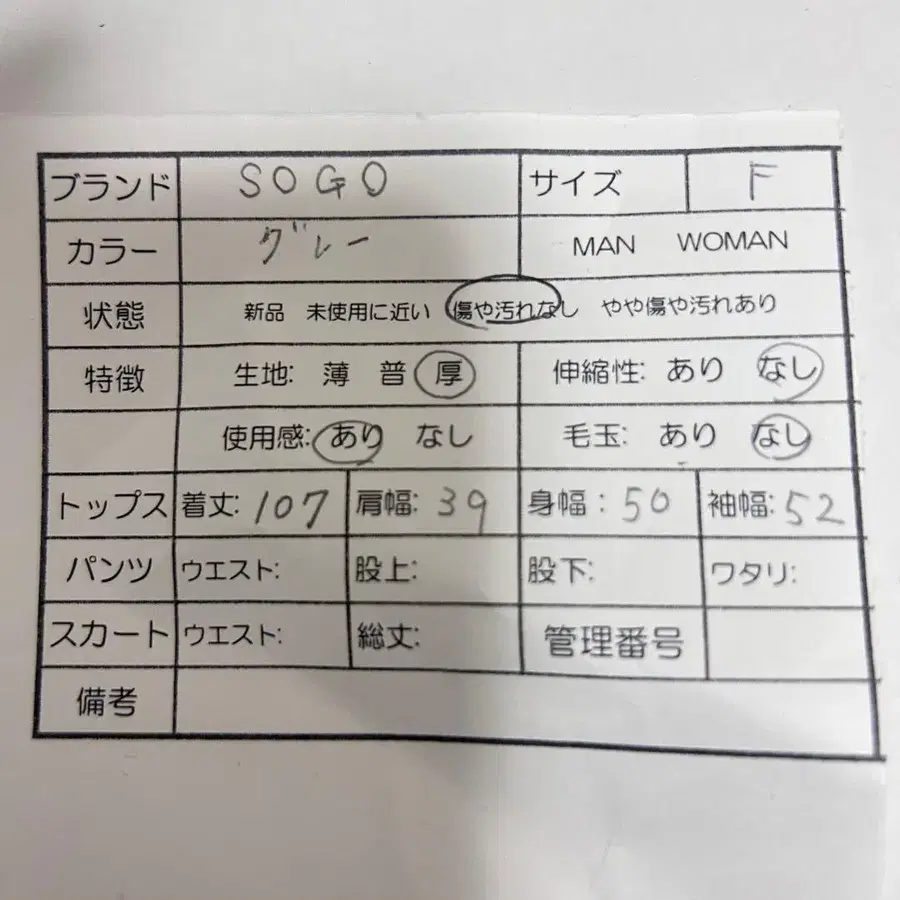 ブランド SOGO サイズ F
カラー グレー MAN WOMAN
状態 新品 未使用に近い 傷や汚れなし やや傷や汚れあり
特徴 生地: 薄 普 厚 伸縮性: あり なし
使用感: あり なし 毛玉: あり なし
トップス 着丈: 107 肩幅: 39 身幅: 50 袖幅: 52
パンツ ウエスト: 股上: 股下: ワタリ:
スカート ウエスト: 総丈: 管理番号
備考